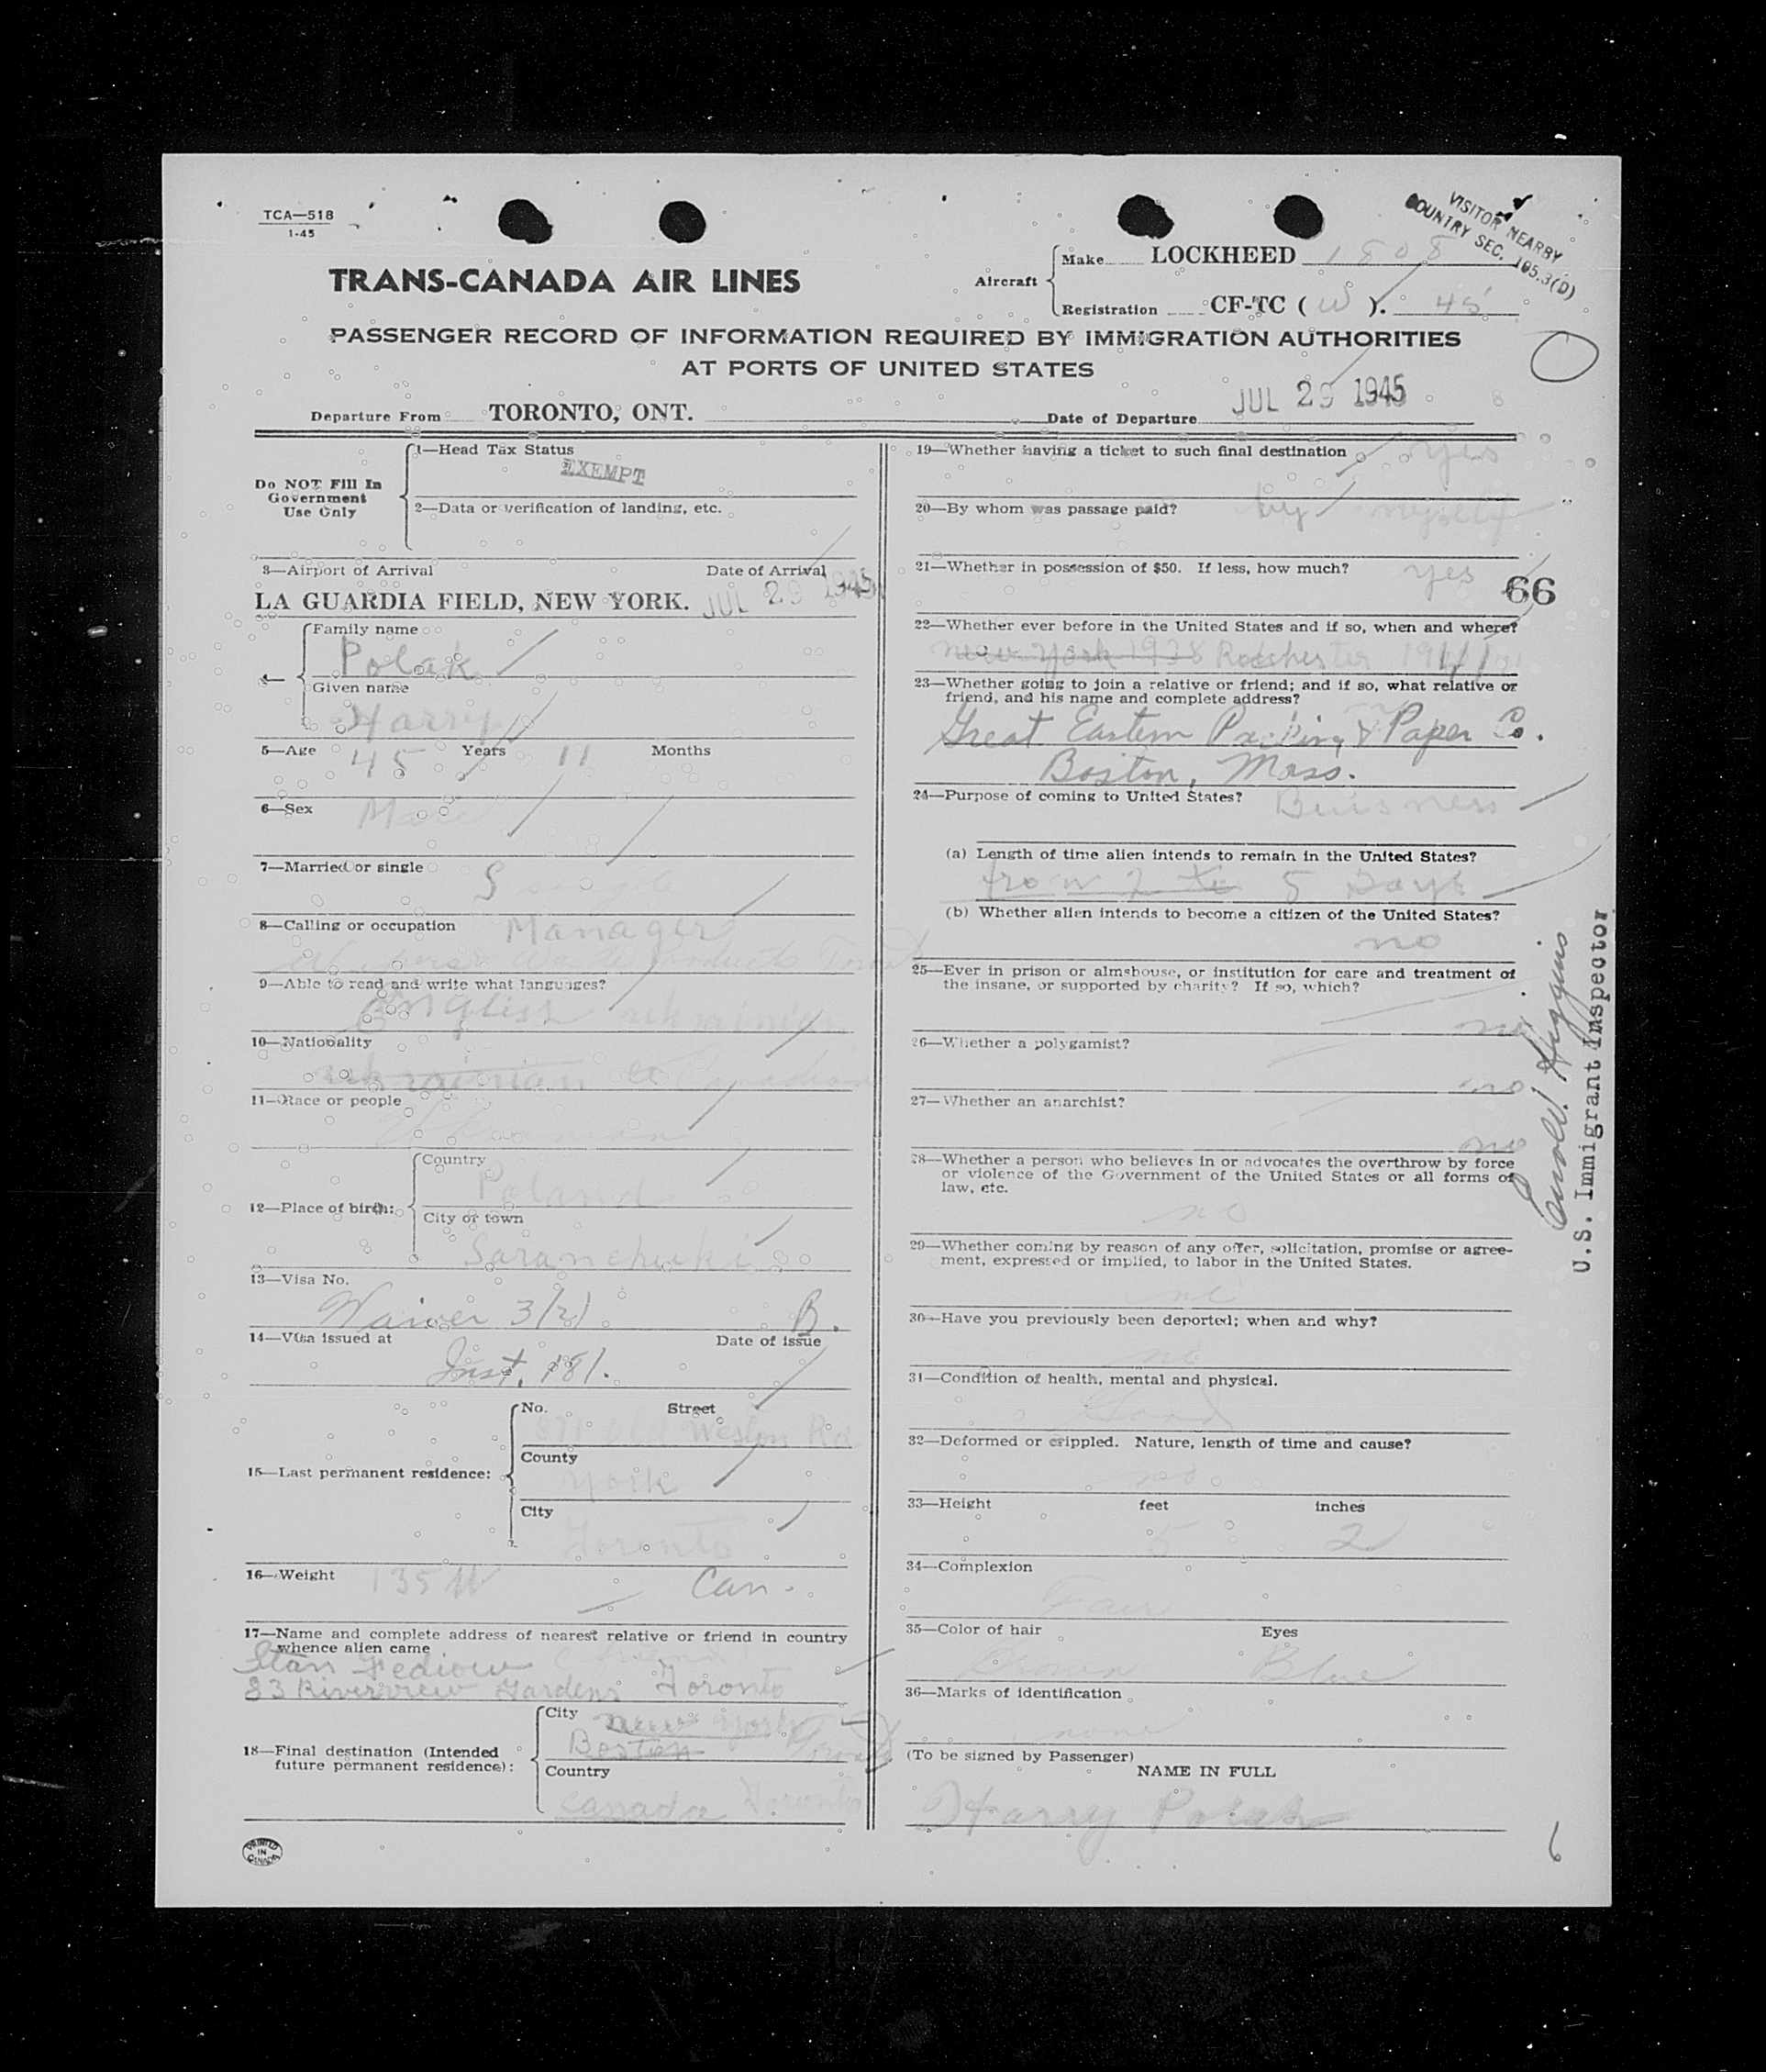 TCA—518
1-45
VISITOR NEARBY
COUNTRY SEC. 195.3(D)
TRANS-CANADA AIR LINES
Aircraft
Make LOCKHEED 1808
Registration CF-TC ( W ). 45
PASSENGER RECORD OF INFORMATION REQUIRED BY IMMIGRATION AUTHORITIES
AT PORTS OF UNITED STATES
Departure From TORONTO, ONT. Date of Departure JUL 29 1945
Do NOT Fill In
Government
Use Only
1—Head Tax Status
EXEMPT
2—Data or verification of landing, etc.
3—Airport of Arrival Date of Arrival
LA GUARDIA FIELD, NEW YORK. JUL 29 1945
4—
Family name
Polak
Given name
Harry
5—Age 45 Years 11 Months
6—Sex Male
7—Married or single S
8—Calling or occupation Manager
9—Able to read and write what languages?
English ukrainian
10—Nationality
ukrainian Canadian
11—Race or people
12—Place of birth:
Country
Poland
City or town
Saranchuki
13—Visa No.
Waiver 3(2) B.
14—Visa issued at Date of issue
Inst. 181.
15—Last permanent residence:
No. Street
Old Weston Rd
County
York
City
Toronto
16—Weight 135 Can.
17—Name and complete address of nearest relative or friend in country
whence alien came
Stan Fediow
83 Riverview Gardens Toronto
18—Final destination (Intended
future permanent residence):
City
new York
Boston
Country
Canada Toronto
PRINTED
IN
CANADA
19—Whether having a ticket to such final destination yes
20—By whom was passage paid? by myself
21—Whether in possession of $50. If less, how much? yes
66
22—Whether ever before in the United States and if so, when and where?
new York 1938 Rochester
23—Whether going to join a relative or friend; and if so, what relative or
friend, and his name and complete address?
Great Eastern Packing & Paper Co.
Boston, Mass.
24—Purpose of coming to United States? Buisness
(a) Length of time alien intends to remain in the United States?
from 2 to 5 Days
(b) Whether alien intends to become a citizen of the United States?
no
25—Ever in prison or almshouse, or institution for care and treatment of
the insane, or supported by charity? If so, which?
no
26—Whether a polygamist?
no
27—Whether an anarchist?
no
28—Whether a person who believes in or advocates the overthrow by force
or violence of the Government of the United States or all forms of
law, etc.
no
29—Whether coming by reason of any offer, solicitation, promise or agree-
ment, expressed or implied, to labor in the United States.
no
30—Have you previously been deported; when and why?
no
31—Condition of health, mental and physical.
Good
32—Deformed or crippled. Nature, length of time and cause?
no
33—Height feet inches
5 2
34—Complexion
Fair
35—Color of hair Eyes
Brown Blue
36—Marks of identification
none
(To be signed by Passenger)
NAME IN FULL
Harry Polak
6
Higgins
U.S. Immigrant Inspector